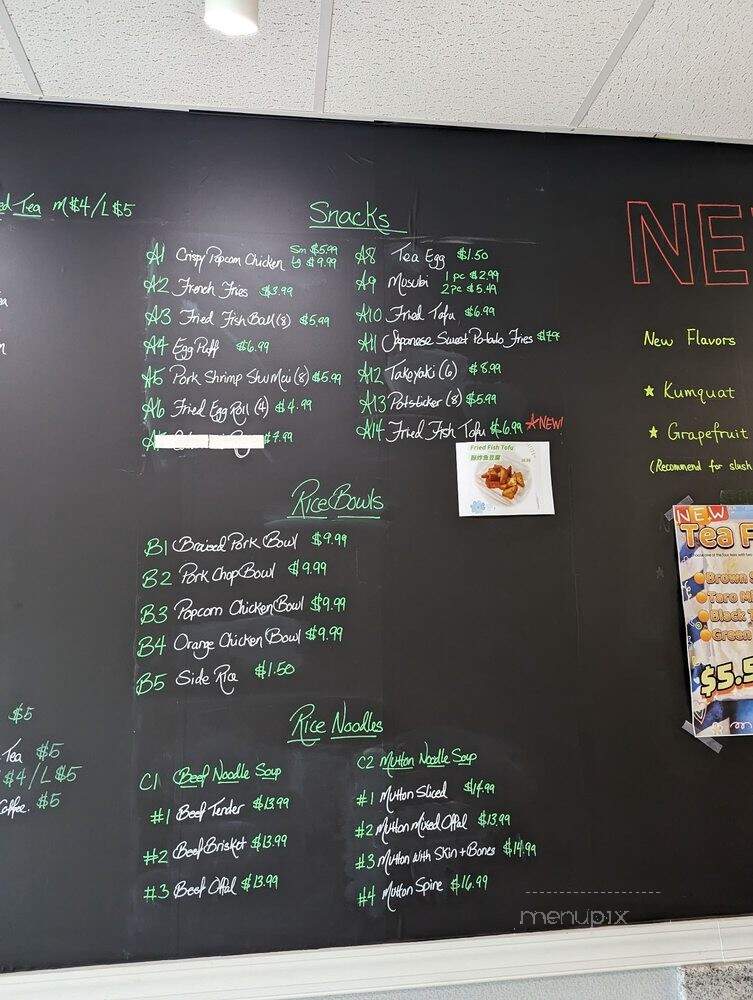 ed Tea M$4/L$5
Snacks
A1 Crispy Popcorn Chicken Sm $5.99
Lg $9.99
A2 French Fries $3.99
A3 Fried Fish Ball (8) $5.99
A4 Egg Puff $6.99
A5 Pork Shrimp Shu Mai (8) $5.99
A6 Fried Egg Roll (4) $4.99
$7.99
A8 Tea Egg $1.50
A9 Musubi 1 pc $2.99
2 pc $5.49
A10 Fried Tofu $6.99
A11 Japanese Sweet Potato Fries
A12 Takoyaki (6) $8.99
A13 Potsticker (8) $5.99
A14 Fried Fish Tofu $6.99 ☆NEW!
Fried Fish Tofu
酥炸魚豆腐
Rice Bowls
B1 Braised Pork Bowl $9.99
B2 Pork Chop Bowl $9.99
B3 Popcorn Chicken Bowl $9.99
B4 Orange Chicken Bowl $9.99
B5 Side Rice $1.50
Rice Noodles
C1 Beef Noodle Soup
#1 Beef Tender $13.99
#2 Beef Brisket $13.99
#3 Beef Offal $13.99
C2 Mutton Noodle Soup
#1 Mutton Sliced $14.99
#2 Mutton Mixed Offal $13.99
#3 Mutton with Skin + Bones $14.99
#4 Mutton Spine $16.99
$5
Tea $5
$4/L$5
Coffee. $5
NE
New Flavors
★ Kumquat
★ Grapefruit
(Recommend for slush
NEW
Tea F
Brown
Taro Mi
Black
Green
$5.5
menupix